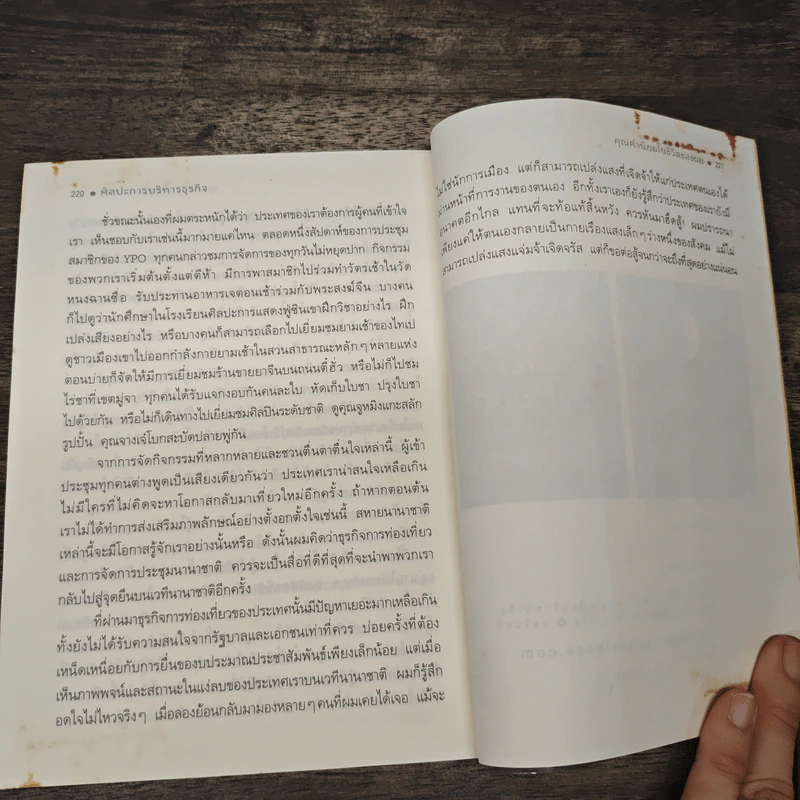 220 ● ศิลปะการบริหารธุรกิจ
ชั่วขณะนั้นเองที่ผมตระหนักได้ว่า ประเทศของเราต้องการผู้คนที่เข้าใจ
เรา เห็นชอบกับเราเช่นนี้มากมายแค่ไหน ตลอดหนึ่งสัปดาห์ของการประชุม
สมาชิกของ YPO ทุกคนกล่าวชมการจัดการของทุกวันไม่หยุดปาก กิจกรรม
ของพวกเราเริ่มต้นตั้งแต่ตีห้า มีการพาสมาชิกไปร่วมทำวัตรเช้าในวัด
หนงฉานซื่อ รับประทานอาหารเจตอนเช้าร่วมกับพระสงฆ์จีน บางคน
ก็ไปดูว่านักศึกษาในโรงเรียนศิลปะการแสดงฟู่ซินเขาฝึกวิชาอย่างไร ฝึก
เปล่งเสียงอย่างไร หรือบางคนก็สามารถเลือกไปเยี่ยมชมยามเช้าของไทเป
ดูชาวเมืองเขาไปออกกำลังกายยามเช้าในสวนสาธารณะหลักๆ หลายแห่ง
ตอนบ่ายก็จัดให้มีการเยี่ยมชมร้านขายยาจีนบนถนนตี๋ฮั่ว หรือไม่ก็ไปชม
ไร่ชาที่เขตมู่จา ทุกคนได้รับแจกงอบกันคนละใบ หัดเก็บใบชา ปรุงใบชา
ไปด้วยกัน หรือไม่ก็เดินทางไปเยี่ยมชมศิลปินระดับชาติ ดูคุณจูหมิงแกะสลัก
รูปปั้น คุณจางเจ๋โบกสะบัดปลายพู่กัน
จากการจัดกิจกรรมที่หลากหลายและชวนตื่นตาตื่นใจเหล่านี้ ผู้เข้า
ประชุมทุกคนต่างพูดเป็นเสียงเดียวกันว่า ประเทศเราน่าสนใจเหลือเกิน
ไม่มีใครที่ไม่คิดจะหาโอกาสกลับมาเที่ยวใหม่อีกครั้ง ถ้าหากตอนต้น
เราไม่ได้ทำการส่งเสริมภาพลักษณ์อย่างตั้งอกตั้งใจเช่นนี้ สหายนานาชาติ
เหล่านี้จะมีโอกาสรู้จักเราอย่างนั้นหรือ ดังนั้นผมคิดว่าธุรกิจการท่องเที่ยว
และการจัดการประชุมนานาชาติ ควรจะเป็นสื่อที่ดีที่สุดที่จะนำพาพวกเรา
กลับไปสู่จุดยืนบนเวทีนานาชาติอีกครั้ง
ที่ผ่านมาธุรกิจการท่องเที่ยวของประเทศนั้นมีปัญหาเยอะมากเหลือเกิน
ทั้งยังไม่ได้รับความสนใจจากรัฐบาลและเอกชนเท่าที่ควร บ่อยครั้งที่ต้อง
เหน็ดเหนื่อยกับการยื่นของบประมาณประชาสัมพันธ์เพียงเล็กน้อย แต่เมื่อ
เห็นภาพพจน์และสถานะในแง่ลบของประเทศเราบนเวทีนานาชาติ ผมก็รู้สึก
อดใจไม่ไหวจริงๆ เมื่อลองย้อนกลับมามองหลายๆ คนที่ผมเคยได้เจอ แม้จะ
คุณค่านิยมในชีวิตของผม ● 221
ไม่ใช่นักการเมือง แต่ก็สามารถเปล่งแสงที่เจิดจ้าให้แก่ประเทศตนเองได้
ผ่านหน้าที่การงานของตนเอง อีกทั้งเราเองก็ยังรู้สึกว่าประเทศของเรายังมี
อนาคตอีกไกล แทนที่จะท้อแท้สิ้นหวัง ควรหันมาฮึดสู้! ผมปรารถนา
เพียงแค่ให้ตนเองกลายเป็นกายเรืองแสงเล็กๆ ร่างหนึ่งของสังคม แม้ไม่
สามารถเปล่งแสงแจ่มจ้าเจิดจรัส แต่ก็ขอต่อสู้จนกว่าจะถึงที่สุดอย่างแน่นอน